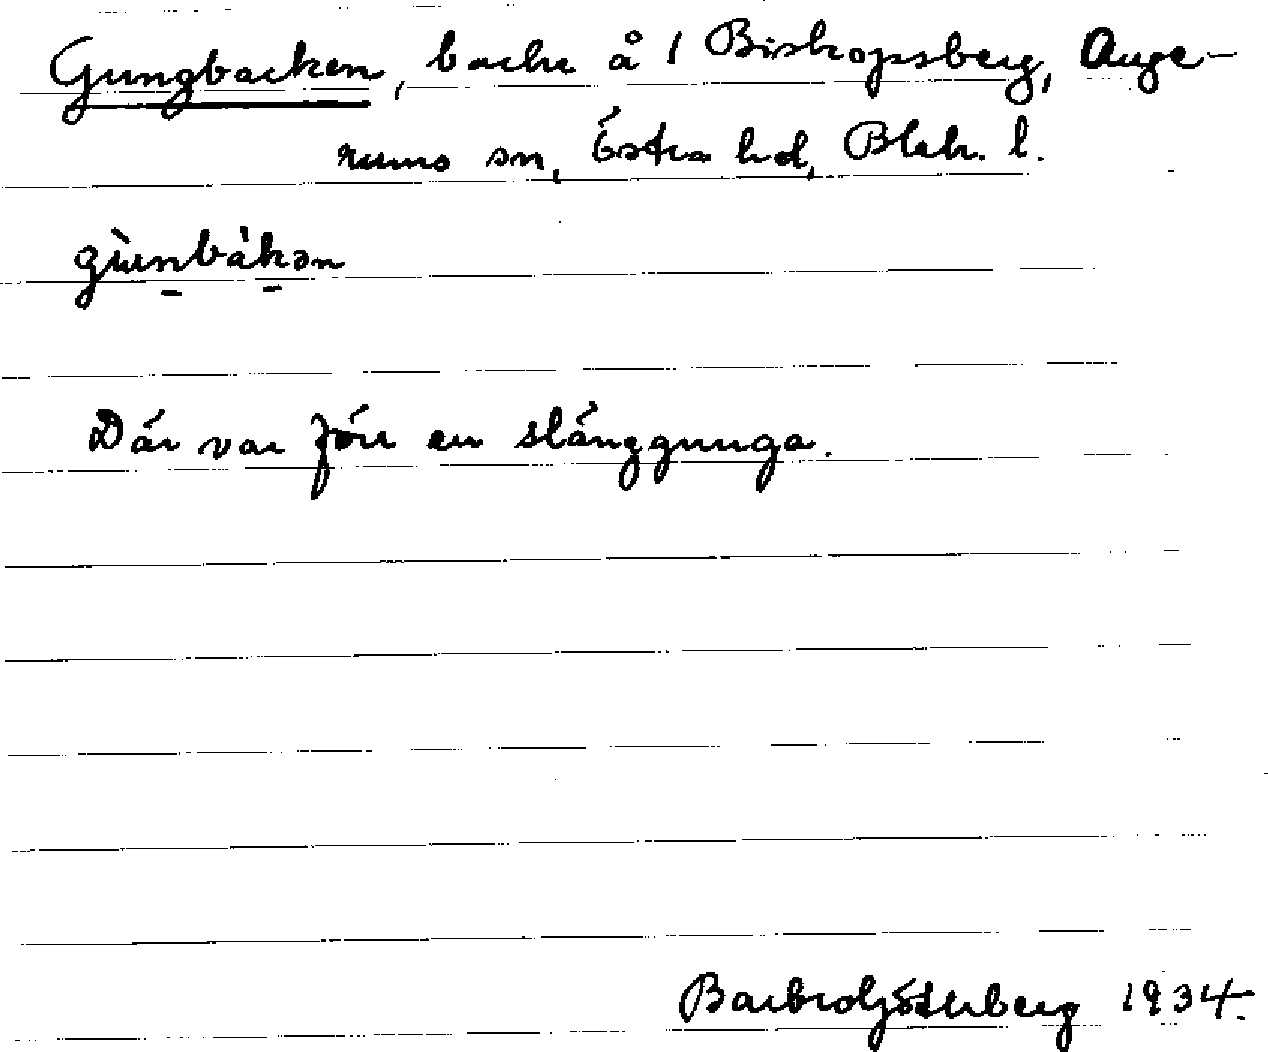 Gungbacken, backe å 1 Biskopsberg, Auge-
rums sn, Östra hd, Blek. l.
gùnbàkən
Där var förr en slänggunga.
Barbro Söterberg 1934.